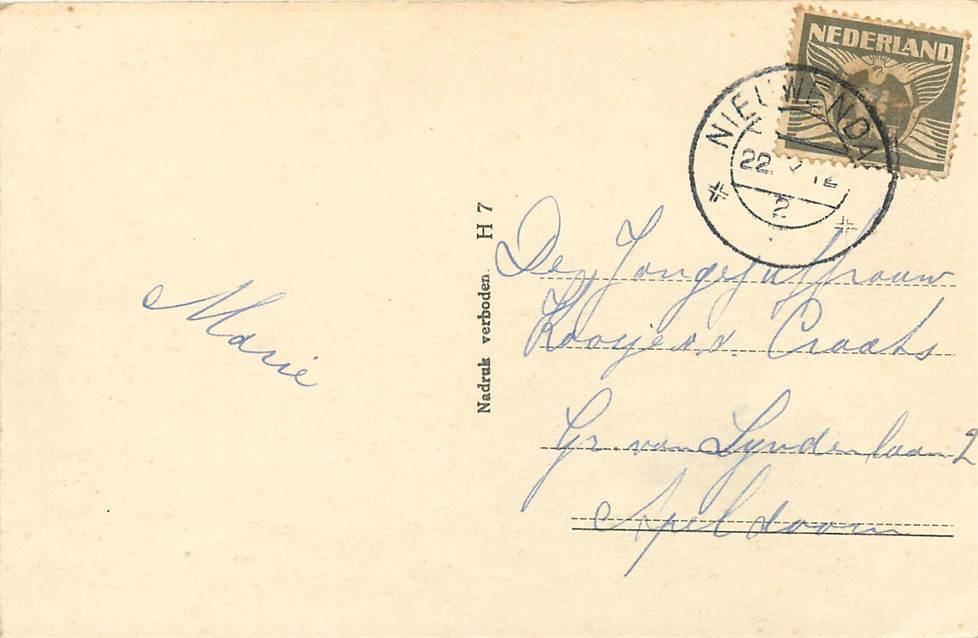 NEDERLAND
NIEUWENDA
22
2
Nadruk verboden. H 7
Marie
De Jongejuffrouw
Gr van Lyndenlaan 2
Apeldoorn